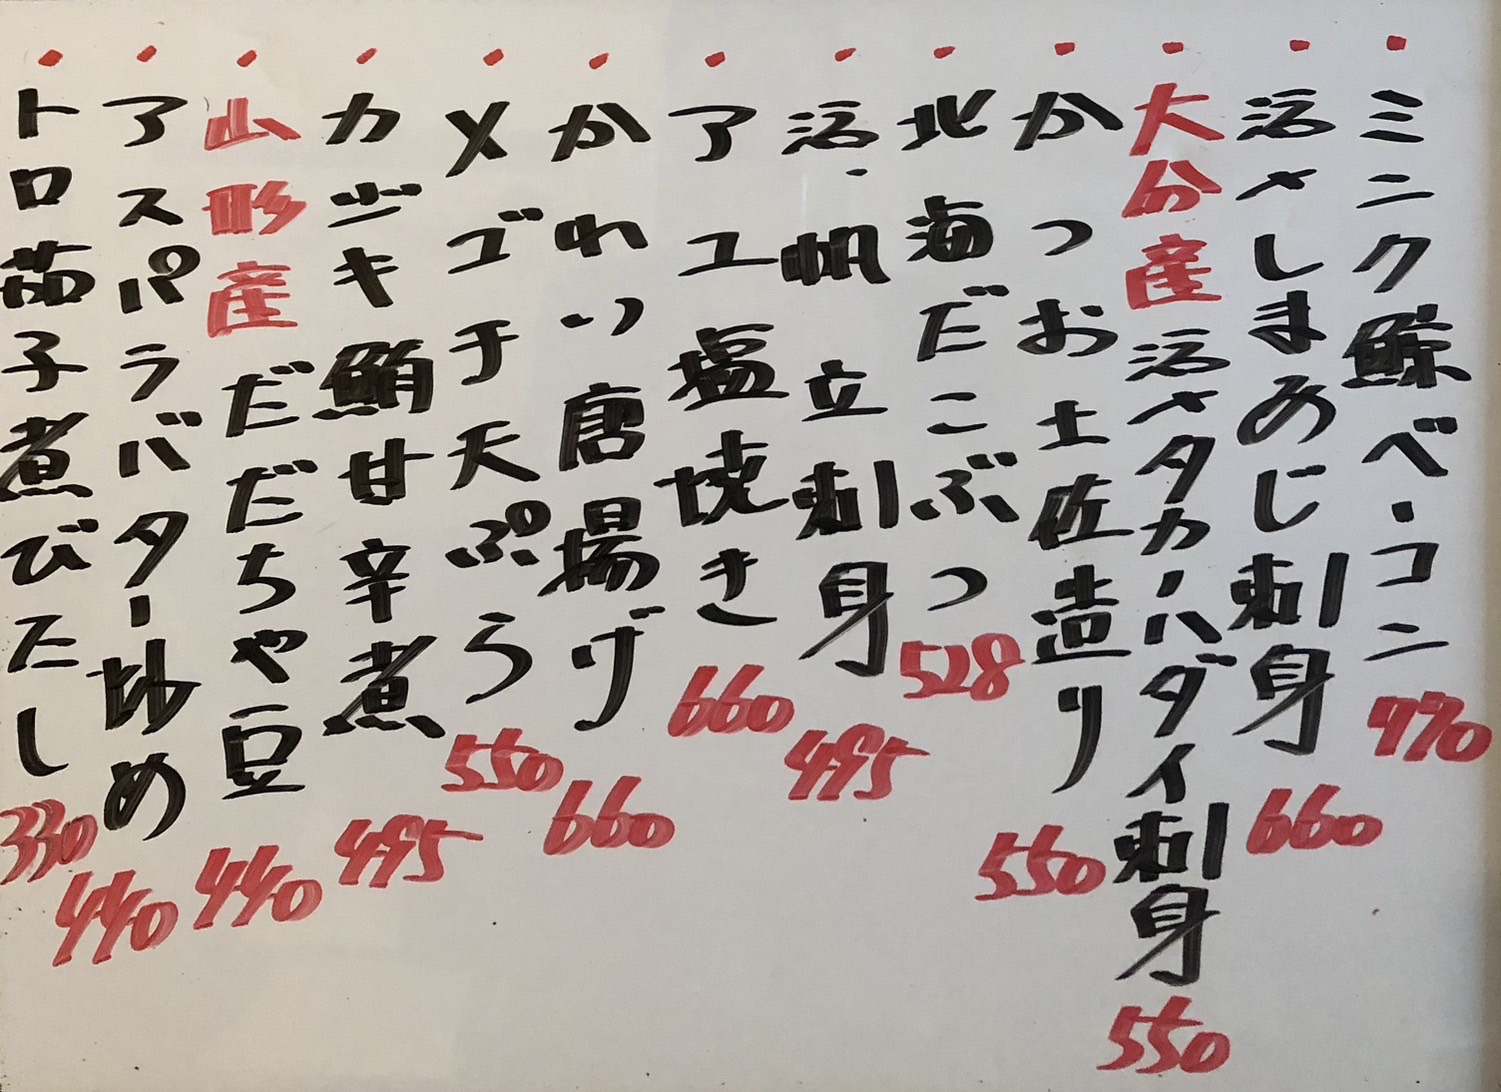 ・ミニク鯨ベーコン 770
・活〆しまあじ刺身 660
・大分産活〆タカノハダイ刺身 550
・かつお土佐造り 550
・北海だこぶつ 528
・活・帆立刺身 495
・アユ塩焼き 660
・かれい唐揚げ 660
・メゴチ天ぷら 550
・カジキ鮪甘辛煮 495
・山形産だだちゃ豆 440
・アスパラバター炒め 440
・トロ茄子煮びたし 330